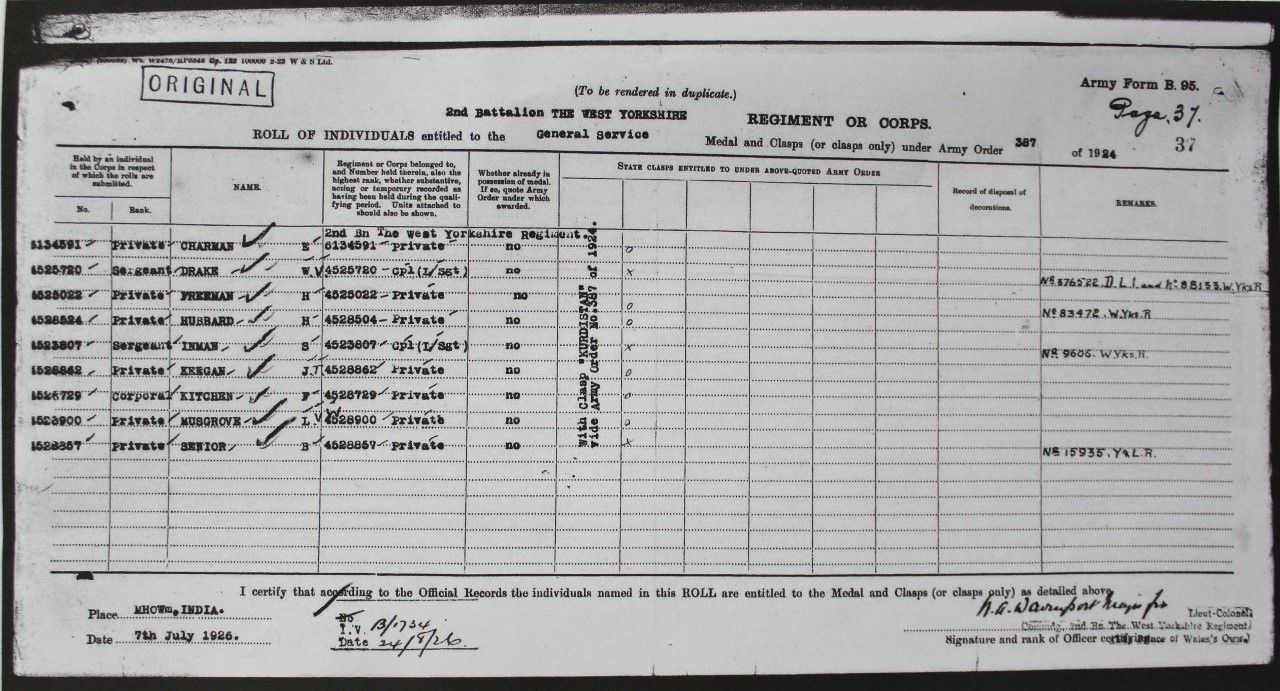 Wt. W2475/RP6548 Gp. 122 100000 2-23 W & S Ltd.
ORIGINAL
(To be rendered in duplicate.)
Army Form B. 95.
Page. 37.
37
2nd Battalion THE WEST YORKSHIRE REGIMENT OR CORPS.
ROLL OF INDIVIDUALS entitled to the General Service Medal and Clasps (or clasps only) under Army Order 387 of 1924
Held by an individual in the Corps in respect of which the rolls are submitted.
No. Rank.
NAME.
Regiment or Corps belonged to, and Number held therein, also the highest rank, whether substantive, acting or temporary recorded as having been held during the qualifying period. Units attached to should also be shown.
Whether already in possession of medal. If so, quote Army Order under which awarded.
STATE CLASPS ENTITLED TO UNDER ABOVE-QUOTED ARMY ORDER
Record of disposal of decorations.
REMARKS.
2nd Bn The West Yorkshire Regiment.
With Clasp "KURDISTAN"
vide Army Order No.387 of 1924.
6134591 Private CHARMAN E 6134591 - Private no o
4525720 Sergeant DRAKE W.V 4525720 - Cpl(L/Sgt) no x
4525022 Private FREEMAN H 4525022 - Private no o No 376522. D.L.I. and No 88133. W.Yks.R
Private HUBBARD H 4528504 - Private no o No 83472. W.Yks.R
4523807 Sergeant INMAN S 4523807 - Cpl(L/Sgt) no x No 9606. W Yks.R.
4528862 Private KEEGAN J.T 4528862 Private no o
Corporal KITCHEN F 4528729 - Private no o
Private MUSGROVE L.W 4528900 - Private no o
Private SENIOR B 4528857 - Private no x No 15935. Y&L.R.
I certify that according to the Official Records the individuals named in this ROLL are entitled to the Medal and Clasps (or clasps only) as detailed above
Place MHOW, INDIA.
Date 7th July 1926.
No
I.V. B/1734
Date 24/8/26.
Davenport Major for
Lieut-Colonel
Commdg. 2nd Bn. The West Yorkshire Regiment
Signature and rank of Officer certifying
(The Prince of Wales's Own)